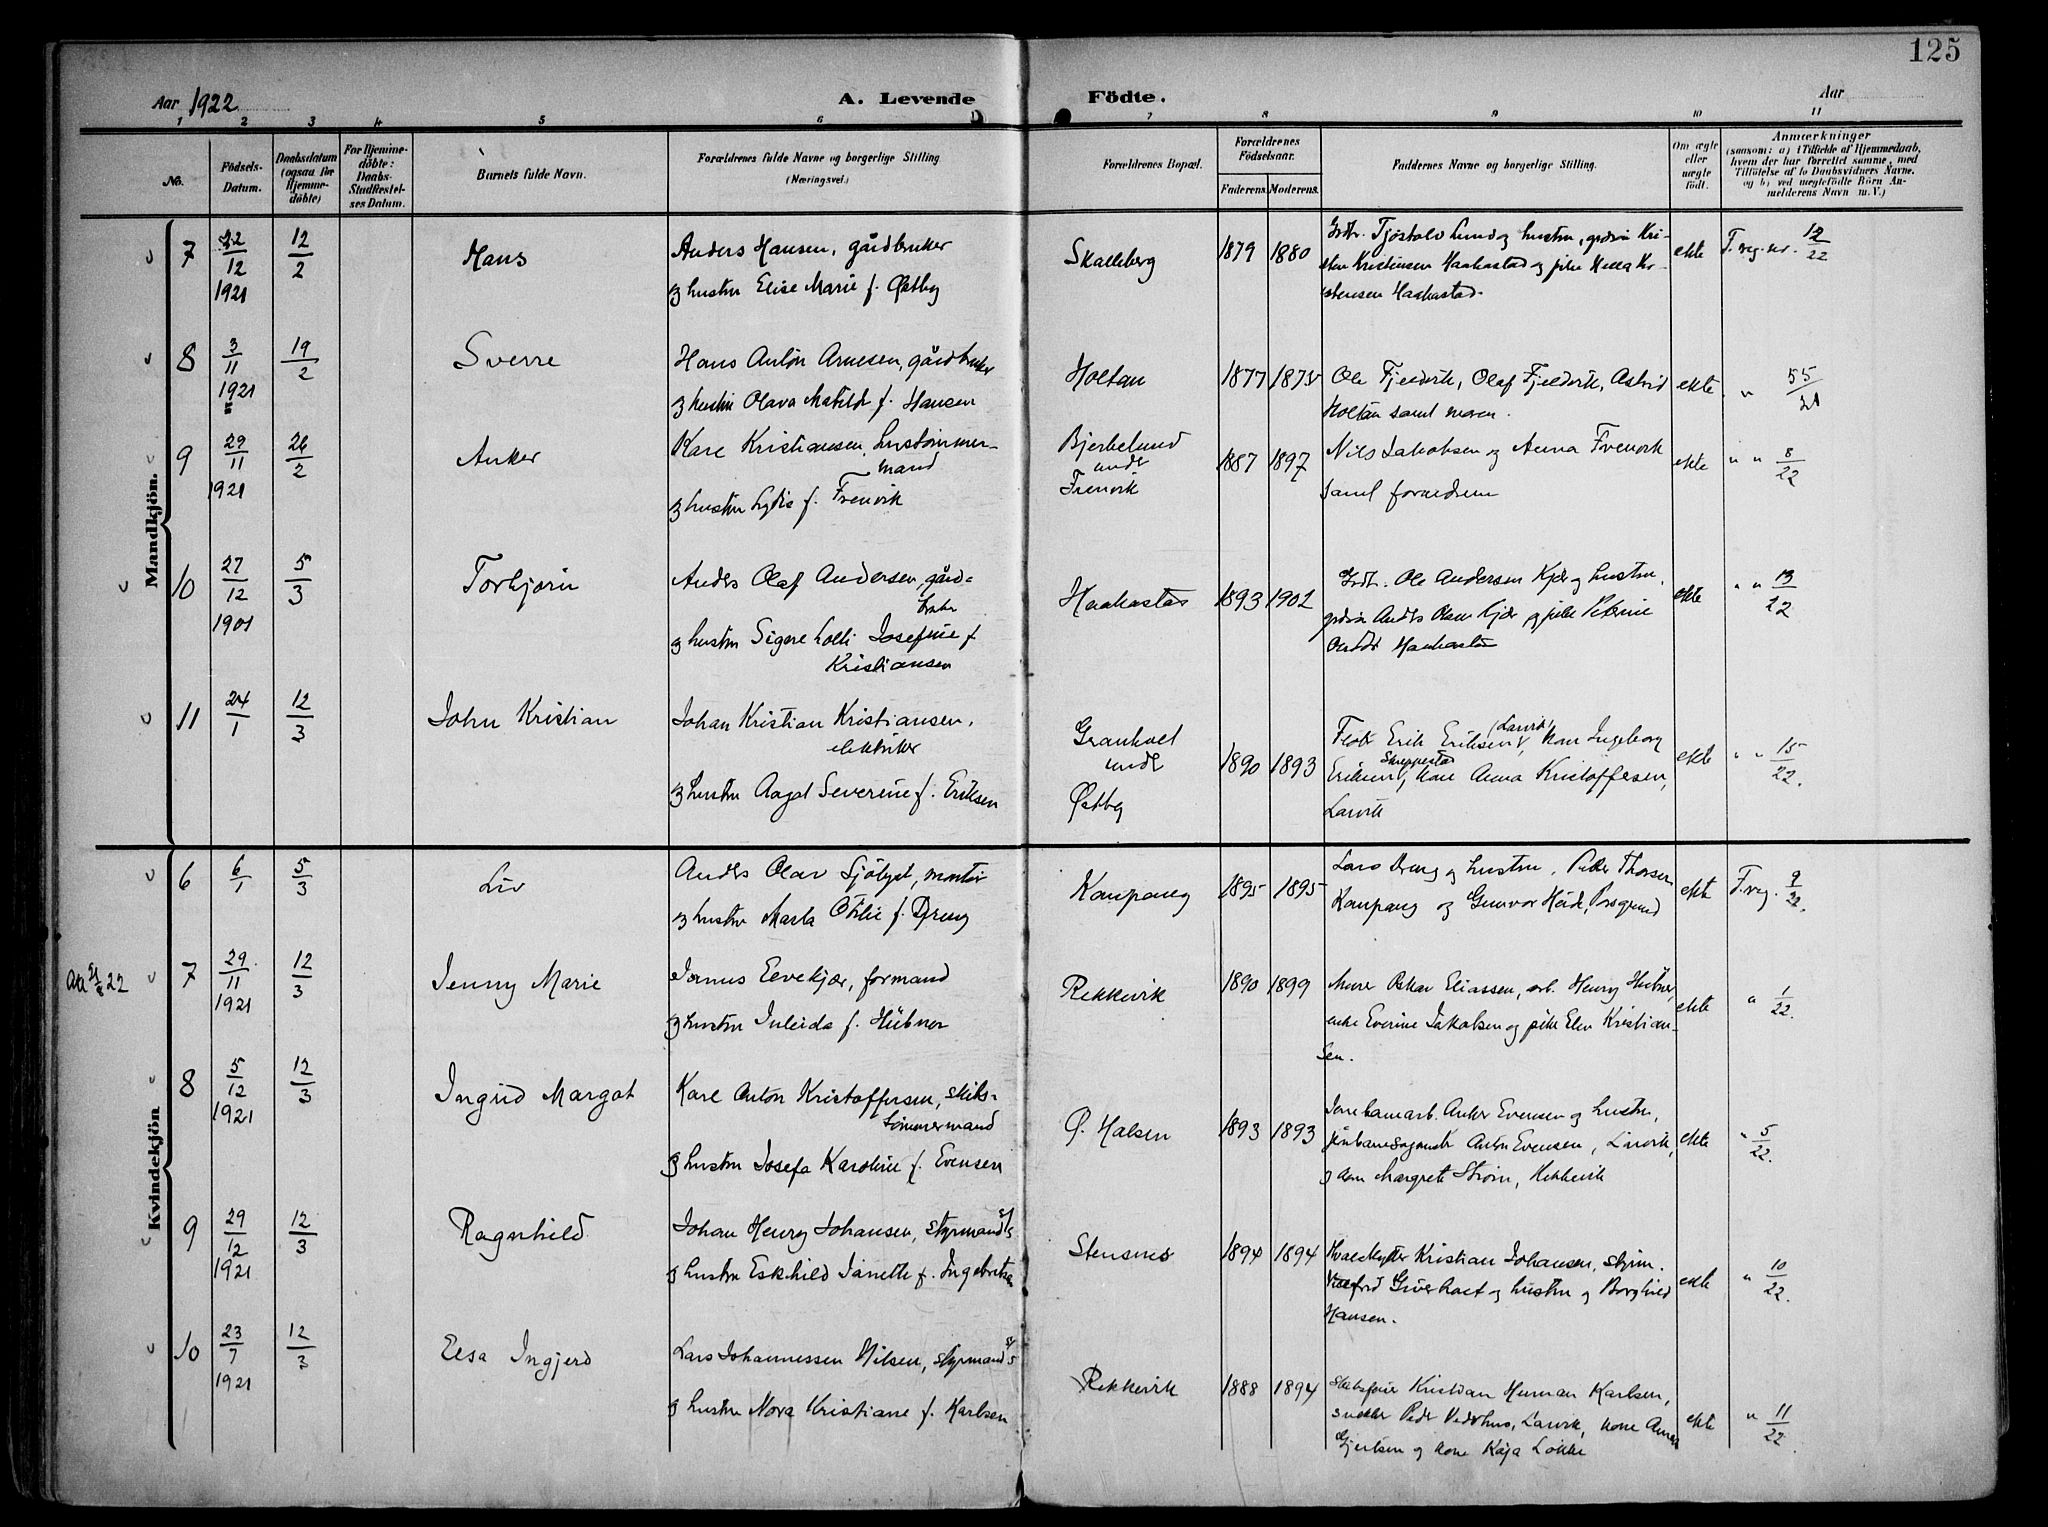 125
Aar 1922
A. Levende
Födte.
Aar
1 2 3 4 5 6 7 8 9 10 11
No.
Födsels-
Datum.
Daabsdatum
(ogsaa for
Hjemme-
döbte)
For Hjemme-
döbte:
Daabs-
Stadfæstel-
ses Datum.
Barnets fulde Navn.
Forældrenes fulde Navne og borgerlige Stilling
(Næringsvei.)
Forældrenes Bopæl.
Forældrenes
Födselsaar.
Faderens. Moderens.
Faddernes Navne og borgerlige Stilling.
Om ægte
eller
uægte
födt.
Anmærkninger
(saasom: a) i Tilfælde af Hjemmedaab,
hvem der har forrettet samme, med
Tilföielse af to Daabsvidners Navne.
og b) ved uægtefödte Börn An-
melderens Navn m.V.)
Mandkjön.
7 22/12 1921 12/2 Hans
Anders Hansen, gårdbruker
og hustru Elise Marie f. Østby
Skalleberg 1879 1880
Tjøstolv Lund og hustru,
Kristensen Haakastad og pike
Haakastad.
ekte F. reg. nr. 12/22
8 3/11 1921 19/2 Sverre
Hans Anton Arnesen, gårdbruker
og hustru Olava Matilde f. Hansen
Holtan 1877 1875
Ole Fjeldvik, Olaf Fjeldvik, Astrid
Holtan samt moren.
ekte " 55/21
9 29/11 1921 26/2 Anker
Karl Kristiansen, hustømmer-
mand
og hustru Lydia f. Frenvik
Bjerkelund
under
Frenvik
1887 1897
Nils Jakobsen og Anna Frenvik
samt forældrene
ekte " " 8/22
10 27/12 1901 5/3 Torbjørn
Anders Olaf Andersen, gård-
bruker
og hustru Josefine f.
Kristiansen
Haakastad 1893 1902
Ole Andersen Kjær og hustru,
Anders Olsen Kjær og pike Petrine
Haakastad
ekte " " 13/22
11 24/1 12/3 John Kristian
Johan Kristian Kristiansen,
elektriker
og hustru Aagot Severine f. Eriksen
Granholt
under
Østby
1890 1893
Erik Eriksen, (Larvik) kone Ingeborg
Eriksen, kone Anna Kristoffersen,
Larvik
ekte " " 15/22.
Kvindekjön
6 6/1 5/3 Liv
Anders Olav Sjølyst, montør
og hustru Marta Otilie f. Dreng
Kaupang 1895 1895
Lars Dreng og hustru, Peder Thorsen
Kaupang og Gunvor Heide, Porsgrund
ekte F. reg. 9/22.
7 29/11 1921 12/3 Jenny Marie
Janus Eevekjær, formand
og hustru f. Hübner
Rekkevik 1890 1899
Murer Oskar Eliassen, arb. Henry Hübner,
enke Everine Jakobsen og pike Elen Kristian-
sen.
ekte " 1/22.
8 5/12 1921 12/3 Ingrid Margot
Karl Anton Kristoffersen, skibs-
tømmermand
og hustru Josefa Karoline f. Evensen
Ø. Halsen 1893 1893
Jernbanearb. Anker Evensen og hustru,
Anton Evensen, Larvik,
og kone Margrete Strøm, Rekkevik
ekte " 5/22.
9 29/12 1921 12/3 Ragnhild
Johan Henry Johansen, styrmand
og hustru Eskhild Janette f. Ingebretsen
Stensnes 1894 1894
Hvalskytter Kristian Johansen, styrm.
og hustru og Borghild
Hansen.
ekte " 10/22.
10 23/7 1921 12/3 Elsa Ingjerd
Lars Johannessen Nilsen, styrmand
og hustru Nora Kristiane f. Karlsen
Rekkevik 1888 1894
Skibsfører Kristian Herman Karlsen,
snekker Peder Vedahus, Larvik, kone Anna
Gjertsen og kone Kaja Løkke
ekte " 11/22